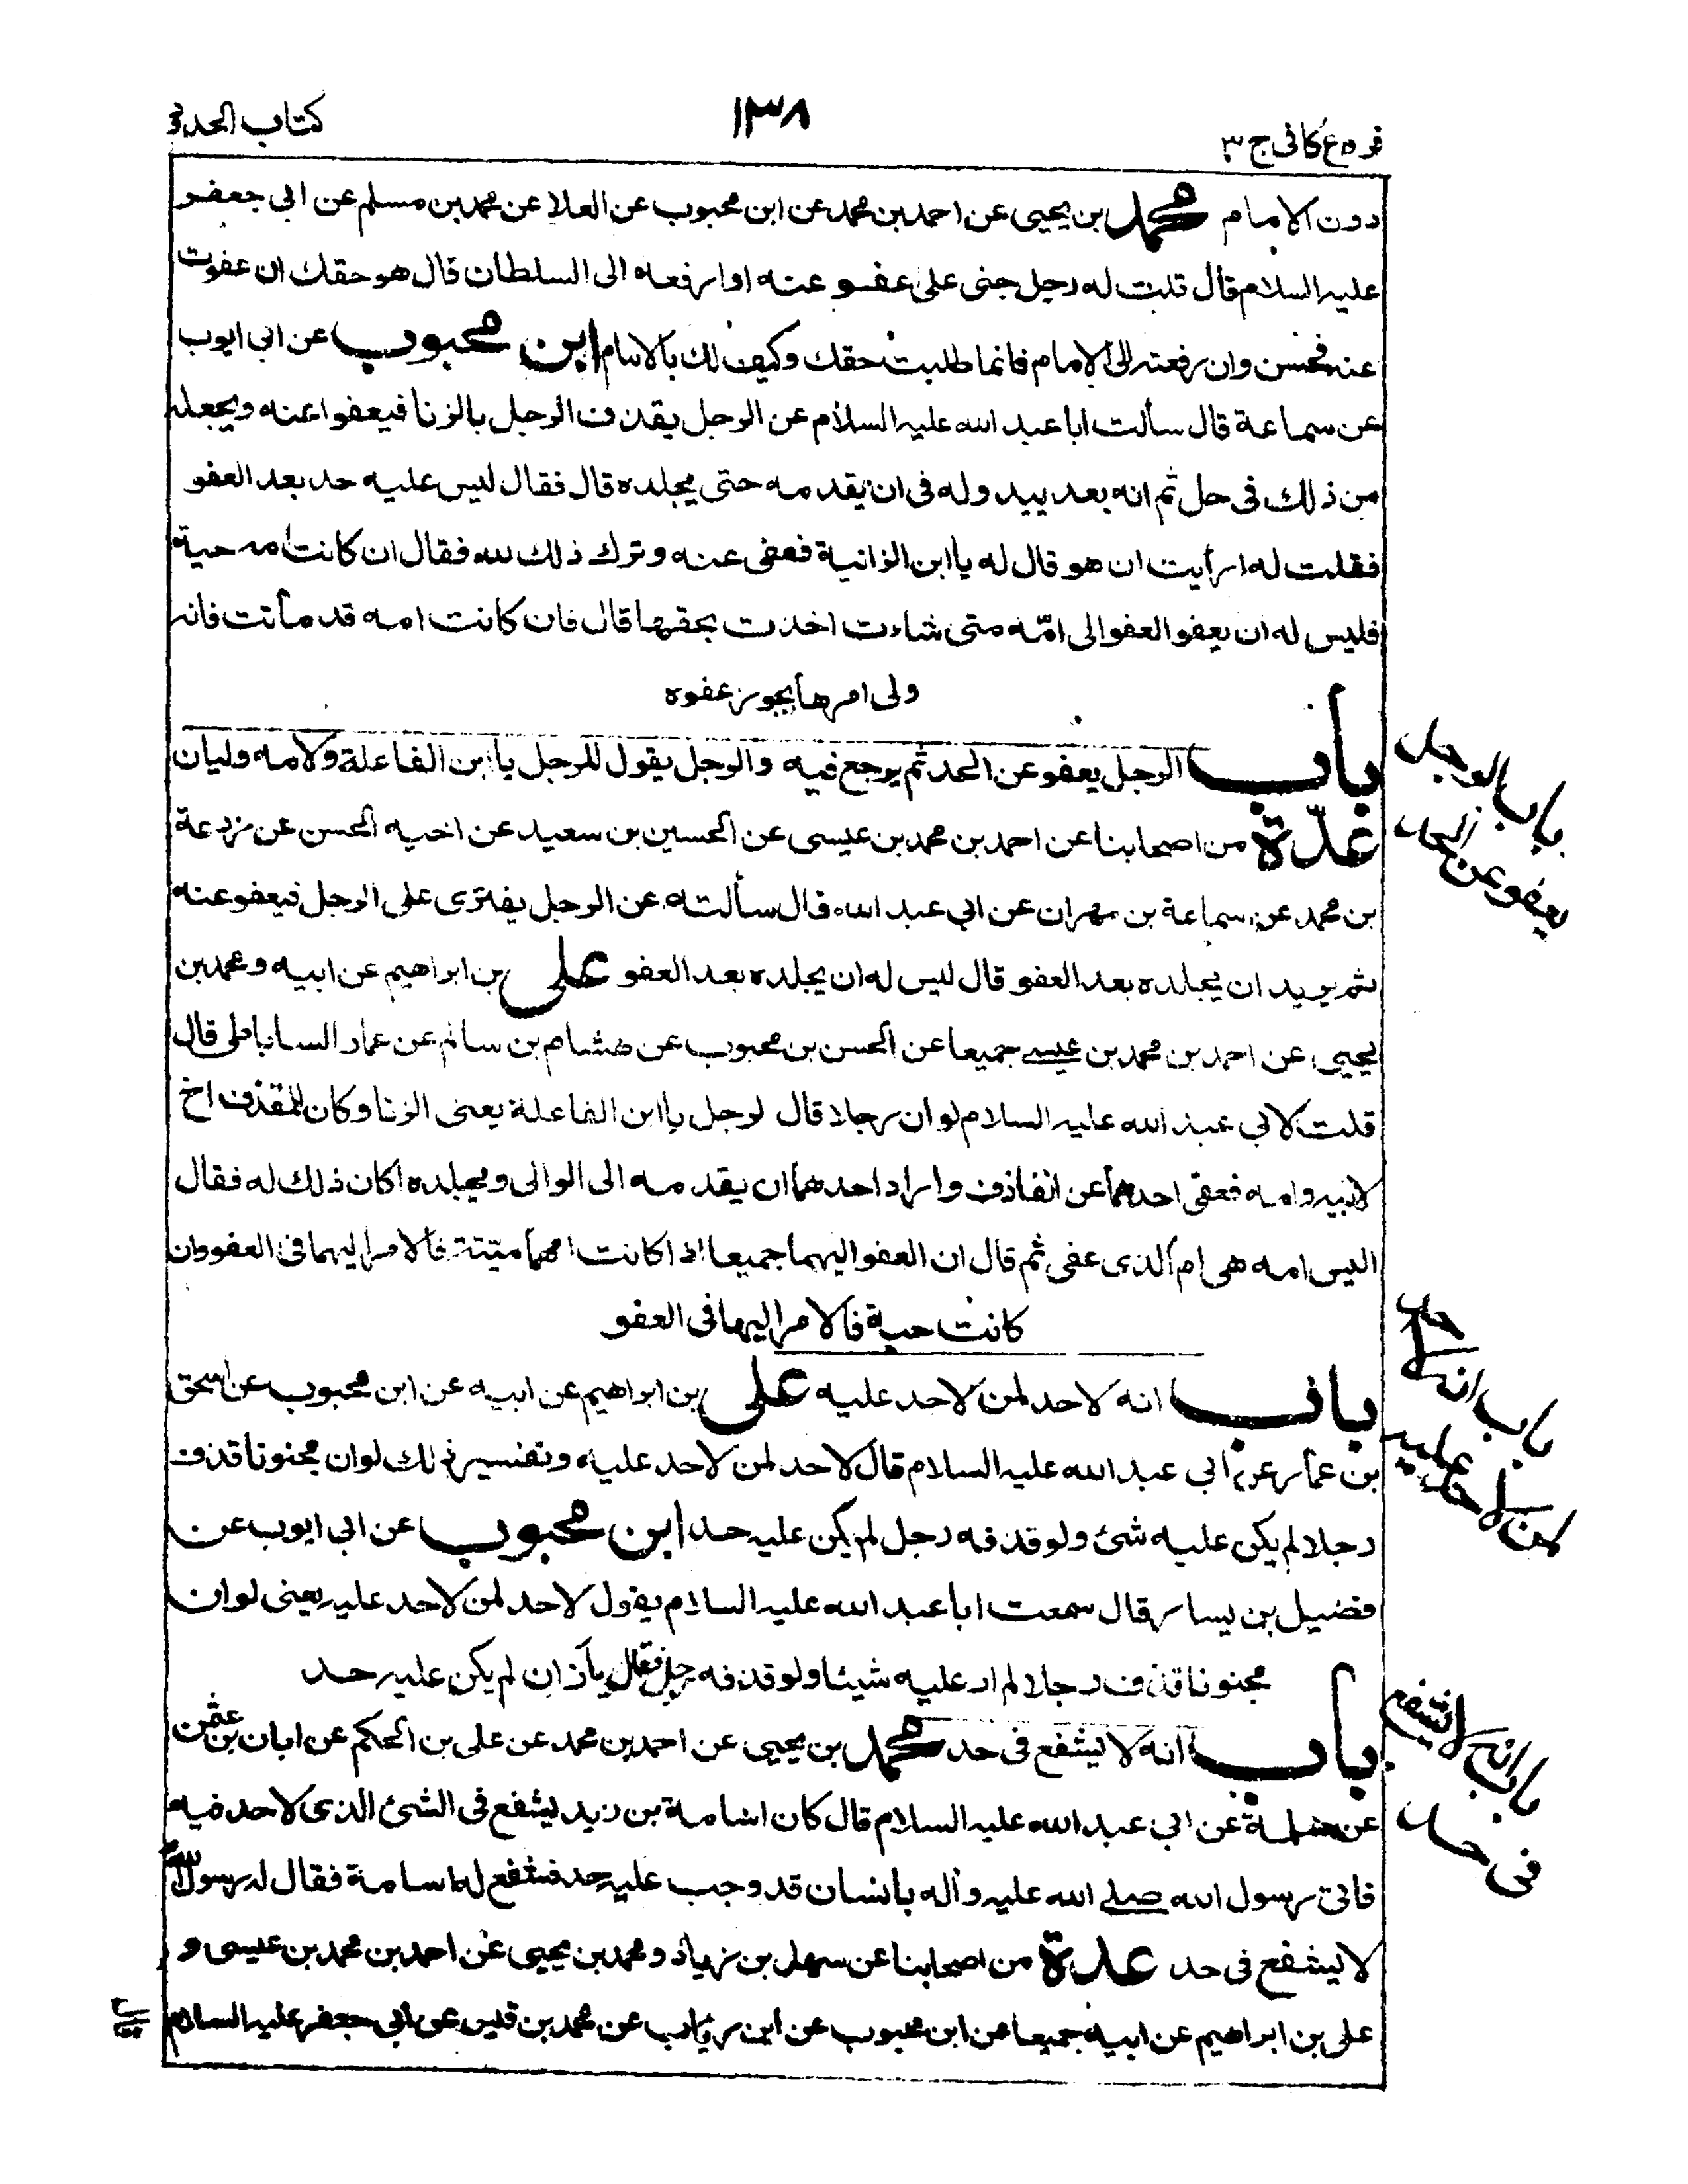 فروع كافى ج ٣
١٣٨
كتاب الحدود
دون الامام محمد بن يحيى عن احمد بن محمد عن ابن محبوب عن العلا عن محمد بن مسلم عن ابى جعفر
عليه السلام قال قلت له رجل جنى على اعفو عنه او ارفعه الى السلطان قال هو حقك ان عفوت
عنه فحسن وان رفعته الى الامام فانما طلبت حقك وكيف لك بالامام ابن محبوب عن ابى ايوب
عن سماعة قال سألت ابا عبد الله عليه السلام عن الرجل يقذف الرجل بالزنا فيعفوا عنه ويجعله
من ذلك فى حل ثم انه بعد يبدو له فى ان يقدمه حتى يجلده قال فقال ليس عليه حد بعد العفو
فقلت له ارأيت ان هو قال له يا ابن الزانية فعفى عنه وترك ذلك لله فقال ان كانت امه حية
فليس له ان يعفو العفو الى امّه متى شاءت اخذت بحقها قال فان كانت امه قد ماتت فانه
ولى امرها يجوز عفوه
باب الرجل يعفو عن الحد ثم يرجع فيه والرجل يقول للرجل يا ابن الفاعلة ولامه وليان
عدّة من اصحابنا عن احمد بن محمد بن عيسى عن الحسين بن سعيد عن اخيه الحسن عن زرعة
بن محمد عن سماعة بن مهران عن ابى عبد الله قال سألته عن الرجل يفترى على الرجل فيعفو عنه
ثم يريد ان يجلده بعد العفو قال ليس له ان يجلده بعد العفو على بن ابراهيم عن ابيه ومحمد بن
يحيى عن احمد بن محمد بن عيسى جميعا عن الحسن بن محبوب عن هشام بن سالم عن عمار الساباطى قال
قلت لابى عبد الله عليه السلام لو ان رجلا قال لرجل يا ابن الفاعلة يعنى الزنا وكان للمقذوف اخ
لابيه وامه فعفى احدهما عن القاذف واراد احدهما ان يقدمه الى الوالى ويجلده اكان ذلك له فقال
اليس امه هى ام الذى عفى ثم قال ان العفو اليهما جميعا اذا كانت امهما ميّتة فالامر اليهما فى العفو وان
كانت حية فالامر اليها فى العفو
باب انه لا حد لمن لا حد عليه على بن ابراهيم عن ابيه عن ابن محبوب عن اسحق
بن عمار عن ابى عبد الله عليه السلام قال لا حد لمن لا حد عليه وتفسير ذلك لو ان مجنونا قذف
رجلا لم يكن عليه شئ ولو قذفه رجل لم يكن عليه حد ابن محبوب عن ابى ايوب عن
فضيل بن يسار قال سمعت ابا عبد الله عليه السلام يقول لا حد لمن لا حد عليه يعنى لو ان
مجنونا قذف رجلا لم ار عليه شيئا ولو قذفه رجل فقال يا زان لم يكن عليه حد
باب انه لا يشفع فى حد محمد بن يحيى عن احمد بن محمد عن على بن الحكم عن ابان بن عثمن
عن سلمة عن ابى عبد الله عليه السلام قال كان اسامة بن زيد يشفع فى الشئ الذى لا حد فيه
فاتى رسول الله صلى الله عليه وآله بانسان قد وجب عليه حد فشفع له اسامة فقال له رسول الله
لا يشفع فى حد عدة من اصحابنا عن سهل بن زياد ومحمد بن يحيى عن احمد بن محمد بن عيسى و
على بن ابراهيم عن ابيه جميعا عن ابن محبوب عن ابن رئاب عن محمد بن قيس عن ابى جعفر عليه السلام
باب الرجل
يعفو عن الحد
باب انه لا حد
لمن لا حد عليه
باب انه لا يشفع
فى حد